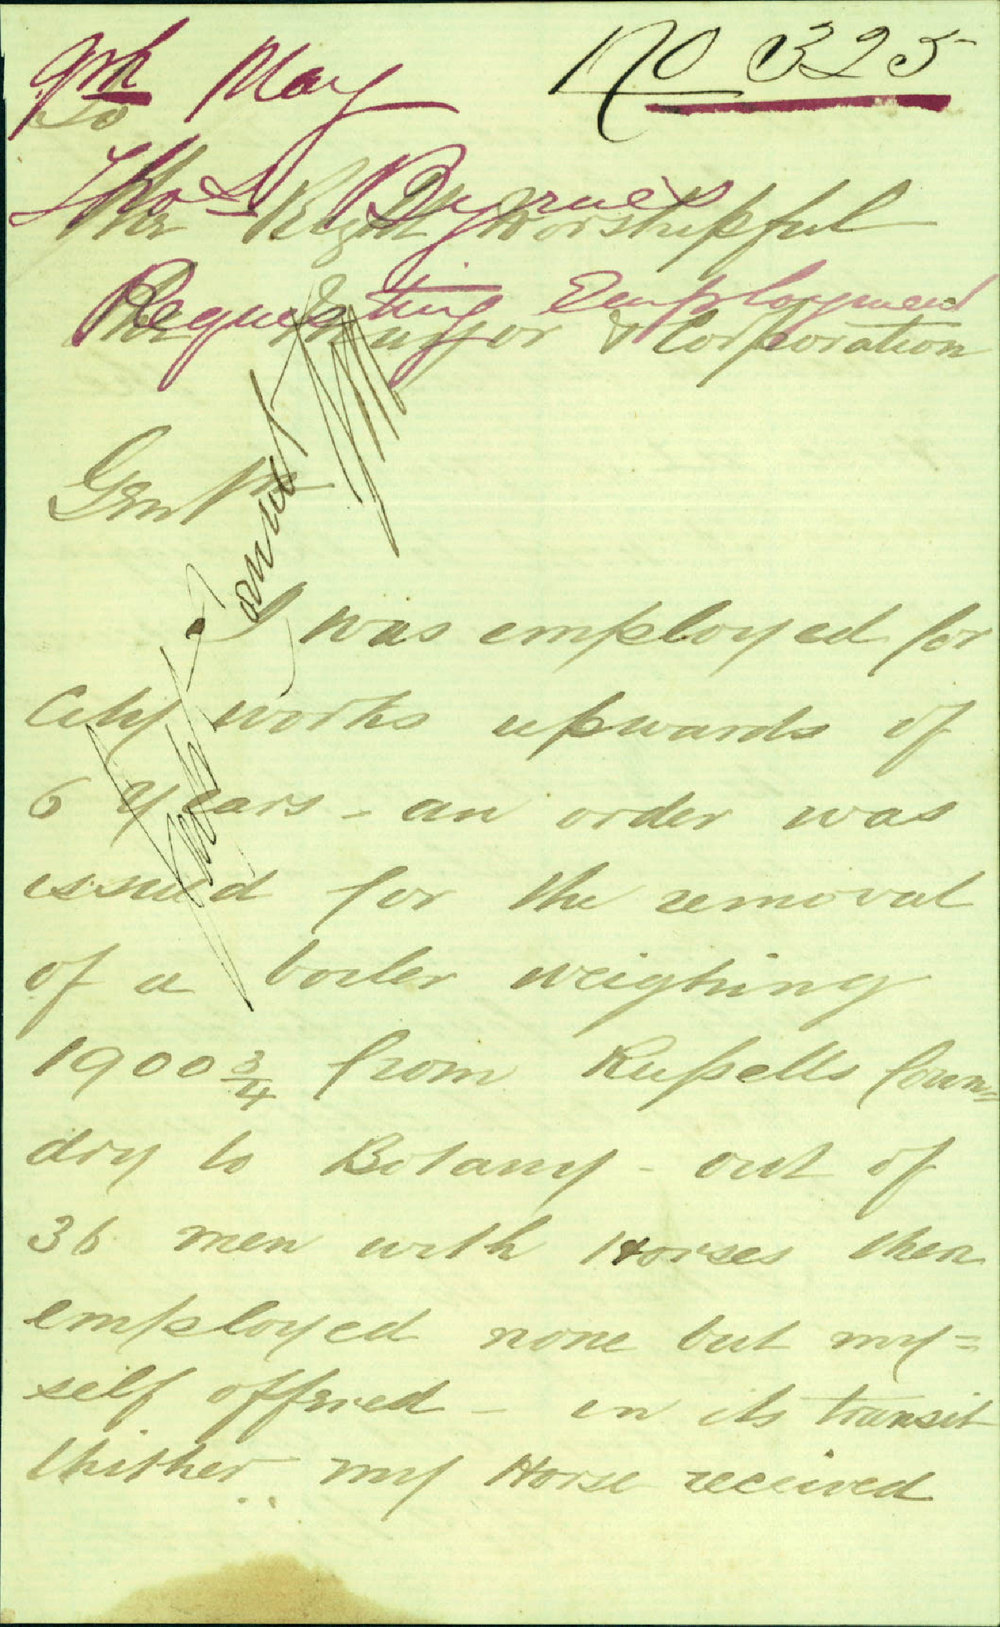 9th May
No 325
Thos Byrne
Requesting Employment
To
The Right Worshipful
The Mayor & Corporation
Gentn
I was employed for
City works upwards of
6 Years - an order was
issued for the removal
of a boiler weighing
1900 3/4 from Russells foun=
dry to Botany - out of
36 men with Horses then
employed none but my=
self offered - in its transit
thither my Horse received